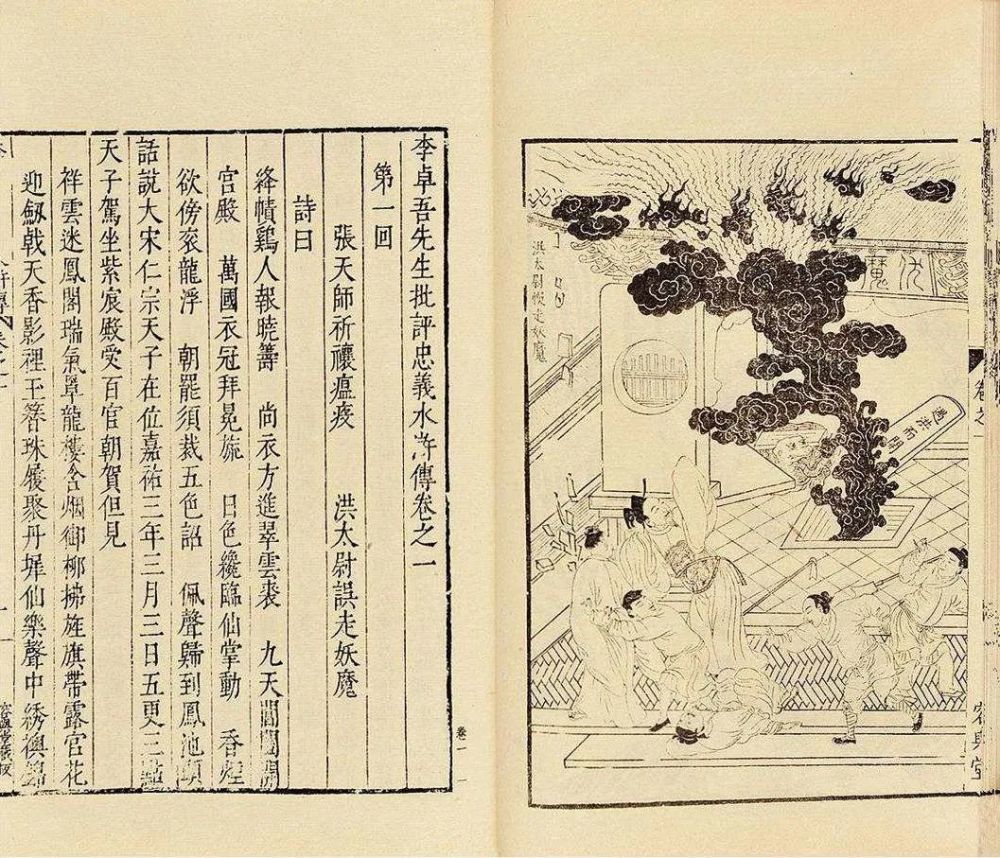 洪太尉悮走妖魔
遇洪而開
卷之一
容與堂
李卓吾先生批評忠義水滸傳卷之一
第一回
張天師祈禳瘟疫　洪太尉誤走妖魔
詩曰
絳幘鷄人報曉籌　尚衣方進翠雲裘　九天閶闔開
宮殿　萬國衣冠拜冕旒　日色纔臨仙掌動　香煙
欲傍衮龍浮　朝罷須裁五色詔　佩聲歸到鳳池頭
話說大宋仁宗天子在位嘉祐三年三月三日五更三點
天子駕坐紫宸殿受百官朝賀但見
祥雲迷鳳閣瑞氣罩龍樓含烟御柳拂旌旗帶露宮花
迎劔戟天香影裡玉簪珠履聚丹墀仙樂聲中綉襖錦
卷一　一